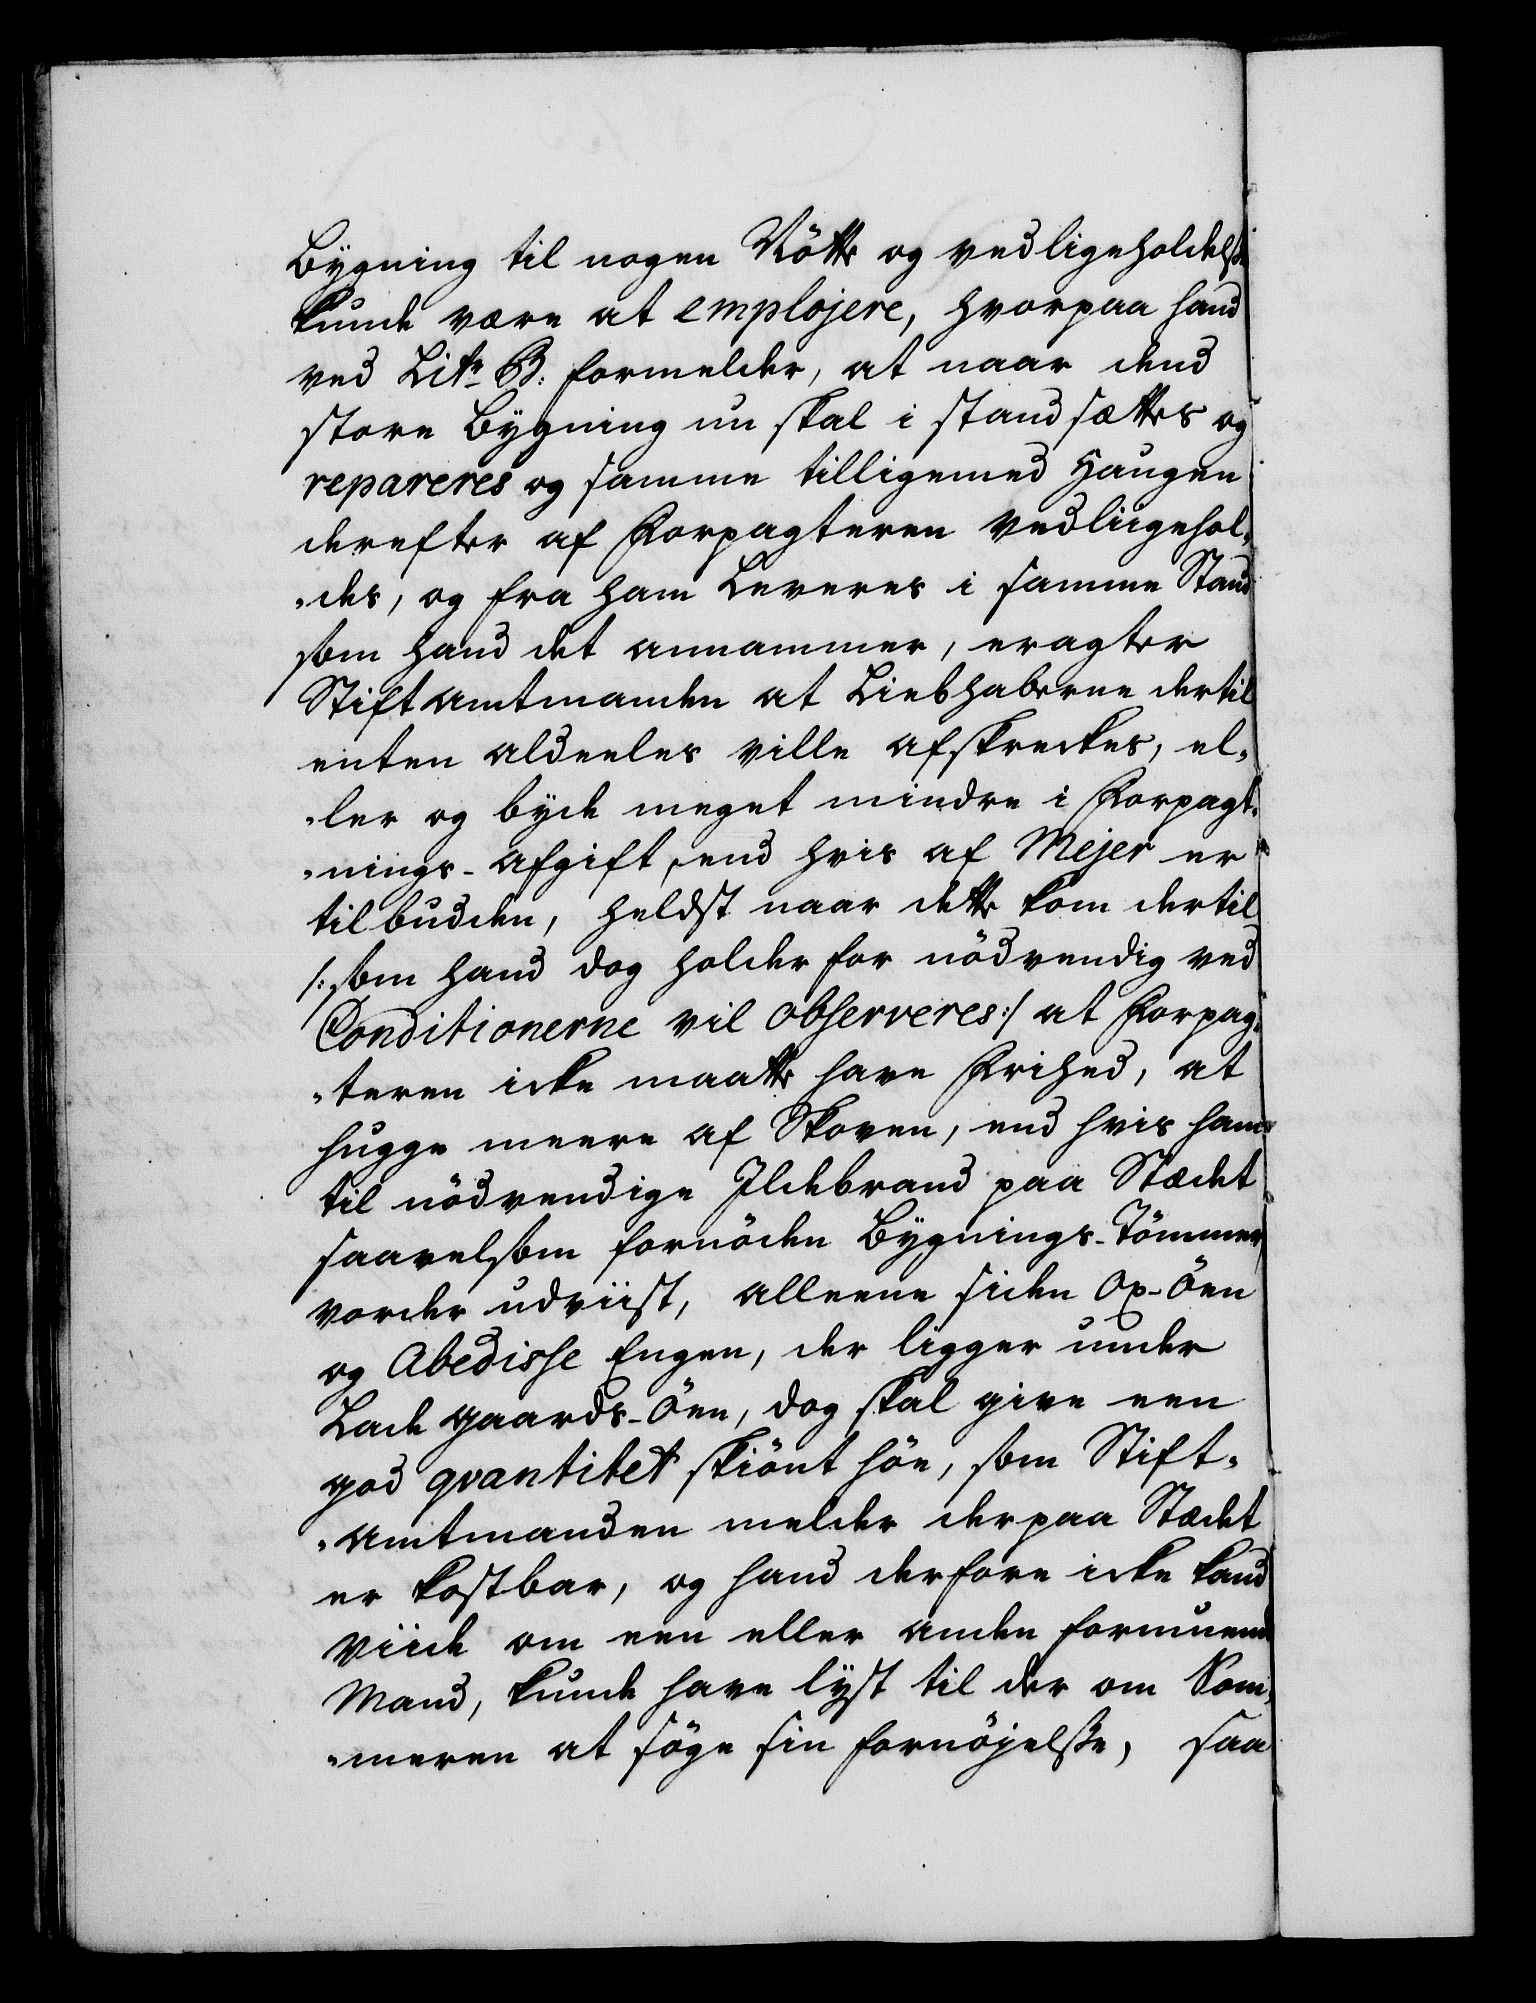 Bygning til nogen Nötte og vedligeholdelse
kunde være at emplojere, hvorpaa hand
ved Litr B: formelder, at naar dend
store Bygning nu skal i stand sættes og
repareres og samme tilligemed Haugen
derefter af Forpagteren vedliigehol„
„des, og fra ham Leveres i samme Stand
som hand det annammer, eragter
Stiftamtmanden at Liebhaberne dertil
enten aldeeles ville afskreckes, el„
„ler og byde meget mindre i Forpagt„
„nings-afgift, end hvis af Mejer er
tilbudden, heldst naar dette kom dertil
/: som hand dog holder for nödvendig ved
Conditionerne vil observeres :/ at Forpag„
„teren icke maatte have Frihed, at
hugge meere af Skoven, end hvis ham
til nödvendige Ildebrand paa Stædet
saavelsom fornöden Bygnings-Tömmer
vorder udviist, alleene siden Ox-Öen
og Abedisse Engen, der ligger under
Ladegaards-Öen, dog skal give een
god qvantitet skiönt höe, som Stift„
„amtmanden melder der paa Stædet
er kostbar, og hand derfore icke kand
viide om een eller anden formuende
Mand, kunde have lyst til der om Som„
„meren at söge sin fornöjelse, saa